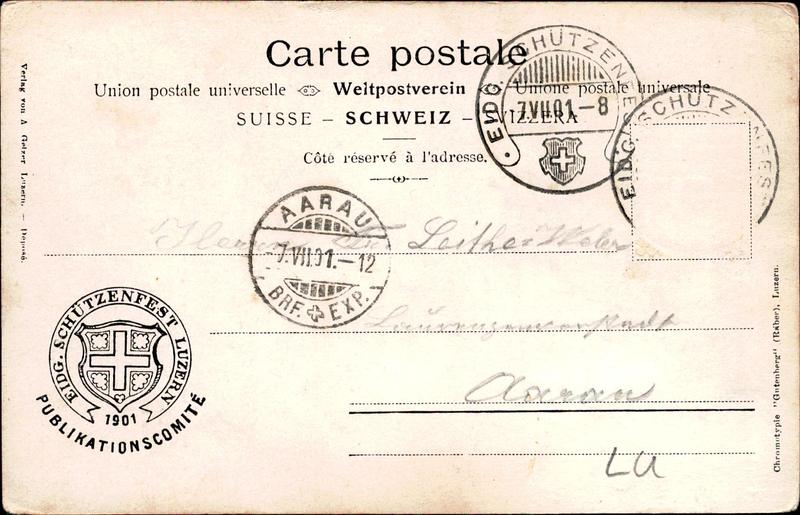 Carte postale
Union postale universelle Weltpostverein Unione postale universale
SUISSE – SCHWEIZ – SVIZZERA
Côté réservé à l'adresse.
EIDG. SCHÜTZENFEST
7.VII.01–8
EIDG. SCHÜTZENFEST
AARAU
7.VII.01.–12
BRF. EXP.
Herrn
Aarau
LU
EIDG. SCHÜTZENFEST LUZERN
1901
PUBLIKATIONSCOMITÉ
Verlag von A Gelzer Luzern. – Deposé.
Chromotypie "Gutenberg" (Räber), Luzern.